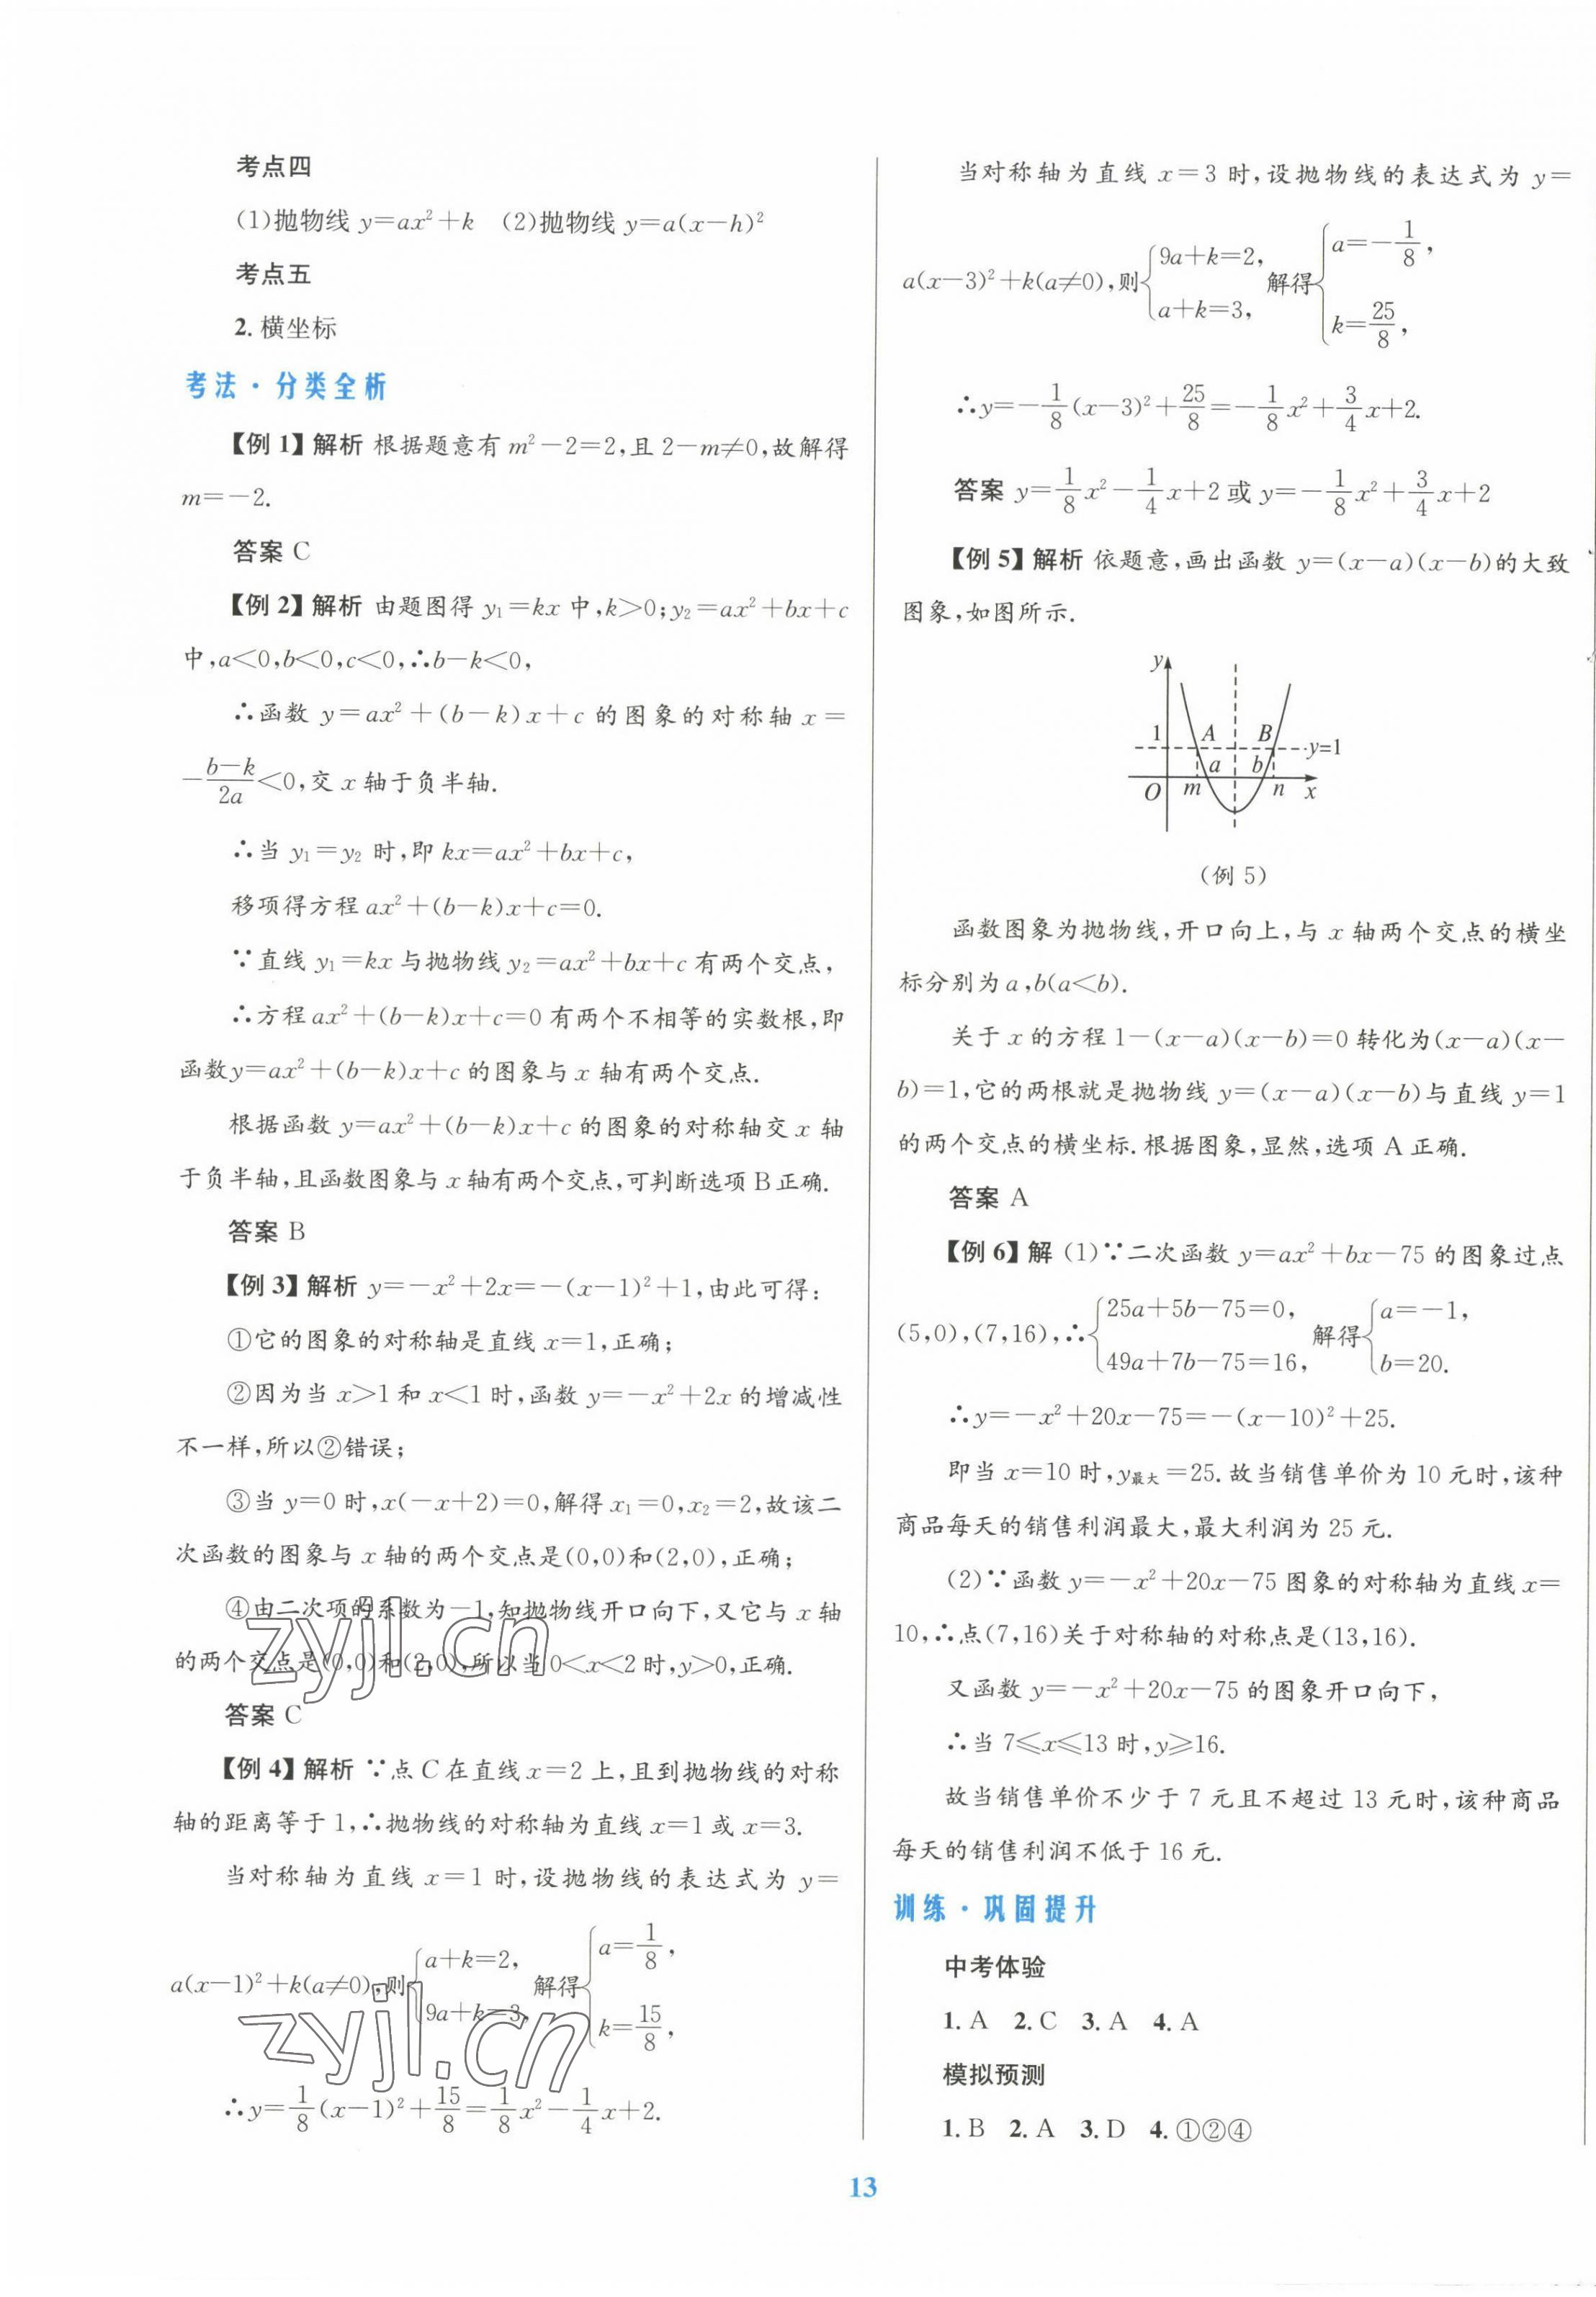 考点四
(1)抛物线 y=ax²+k　(2)抛物线 y=a(x-h)²
考点五
2. 横坐标
考法·分类全析
【例 1】解析 根据题意有 m²-2=2,且 2-m≠0,故解得
m=-2.
答案 C
【例 2】解析 由题图得 y₁=kx 中,k>0;y₂=ax²+bx+c
中,a<0,b<0,c<0,∴b-k<0,
∴函数 y=ax²+(b-k)x+c 的图象的对称轴 x=
-(b-k)/(2a)<0,交 x 轴于负半轴.
∴当 y₁=y₂ 时,即 kx=ax²+bx+c,
移项得方程 ax²+(b-k)x+c=0.
∵直线 y₁=kx 与抛物线 y₂=ax²+bx+c 有两个交点,
∴方程 ax²+(b-k)x+c=0 有两个不相等的实数根,即
函数y=ax²+(b-k)x+c 的图象与 x 轴有两个交点.
根据函数 y=ax²+(b-k)x+c 的图象的对称轴交 x 轴
于负半轴,且函数图象与 x 轴有两个交点,可判断选项 B 正确.
答案 B
【例 3】解析 y=-x²+2x=-(x-1)²+1,由此可得:
①它的图象的对称轴是直线 x=1,正确;
②因为当 x>1 和 x<1 时,函数 y=-x²+2x 的增减性
不一样,所以②错误;
③当 y=0 时,x(-x+2)=0,解得 x₁=0,x₂=2,故该二
次函数的图象与 x 轴的两个交点是(0,0)和(2,0),正确;
④由二次项的系数为-1,知抛物线开口向下,又它与 x 轴
的两个交点是(0,0)和(2,0),所以当 0<x<2 时,y>0,正确.
zyjl.cn
答案 C
【例 4】解析 ∵点 C 在直线 x=2 上,且到抛物线的对称
轴的距离等于 1,∴抛物线的对称轴为直线 x=1 或 x=3.
当对称轴为直线 x=1 时,设抛物线的表达式为 y=
a(x-1)²+k(a≠0),则{a+k=2, 9a+k=3, 解得{a=1/8, k=15/8,
zyjl.cn
∴y=1/8(x-1)²+15/8=1/8x²-1/4x+2.
当对称轴为直线 x=3 时,设抛物线的表达式为 y=
a(x-3)²+k(a≠0),则{9a+k=2, a+k=3, 解得{a=-1/8, k=25/8,
∴y=-1/8(x-3)²+25/8=-1/8x²+3/4x+2.
答案 y=1/8x²-1/4x+2 或 y=-1/8x²+3/4x+2
【例 5】解析 依题意,画出函数 y=(x-a)(x-b)的大致
图象,如图所示.
y
1 A B
y=1
a b
O m n x
(例 5)
函数图象为抛物线,开口向上,与 x 轴两个交点的横坐
标分别为 a,b(a<b).
关于 x 的方程 1-(x-a)(x-b)=0 转化为(x-a)(x-
b)=1,它的两根就是抛物线 y=(x-a)(x-b)与直线 y=1
的两个交点的横坐标.根据图象,显然,选项 A 正确.
答案 A
【例 6】解 (1)∵二次函数 y=ax²+bx-75 的图象过点
(5,0),(7,16),∴{25a+5b-75=0, 49a+7b-75=16, 解得{a=-1, b=20.
∴y=-x²+20x-75=-(x-10)²+25.
即当 x=10 时,y最大=25.故当销售单价为 10 元时,该种
商品每天的销售利润最大,最大利润为 25 元.
(2)∵函数 y=-x²+20x-75 图象的对称轴为直线 x=
10,∴点(7,16)关于对称轴的对称点是(13,16).
又函数 y=-x²+20x-75 的图象开口向下,
∴当 7≤x≤13 时,y≥16.
故当销售单价不少于 7 元且不超过 13 元时,该种商品
每天的销售利润不低于 16 元.
训练·巩固提升
中考体验
1. A　2. C　3. A　4. A
模拟预测
1. B　2. A　3. D　4. ①②④
13